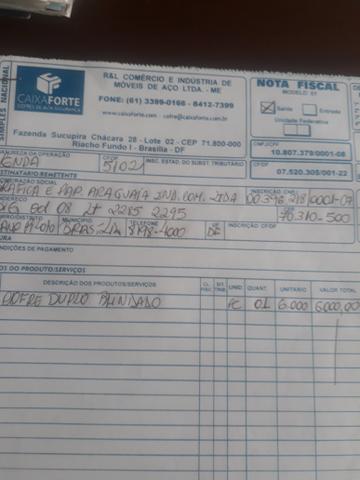 SIMPLES NACIONAL
CAIXAFORTE
COFRES DE ALTA SEGURANÇA
R&L COMÉRCIO E INDÚSTRIA DE
MÓVEIS DE AÇO LTDA. - ME
FONE: (61) 3399-0166 - 8412-7399
www.caixaforte.com - cofre@caixaforte.com.br
Fazenda Sucupira Chácara 28 - Lote 02 - CEP 71.800-000
Riacho Fundo I - Brasília - DF
NOTA FISCAL
MODELO 01
Saída
Entrada
Unidade Federativa
CNPJ/CPF
10.807.379/0001-06
CF/DF
07.520.305/001-22
NATUREZA DA OPERAÇÃO
VENDA
CFOP
5102
INSC. ESTAD. DO SUBST. TRIBUTÁRIO
DESTINATÁRIO REMETENTE
NOME/RAZÃO SOCIAL
GRAFICA E PAP. ARAGUAIA IND. COM. LTDA
INSCRIÇÃO CNPJ
ENDEREÇO
2285 2295
CEP
70.310-500
BAIRRO/DISTRITO
MUNICÍPIO
TELEFONE
UF
INSCRIÇÃO CF/DF
CONDIÇÕES DE PAGAMENTO
DADOS DO PRODUTO/SERVIÇOS
DESCRIÇÃO DOS PRODUTOS/SERVIÇOS
CL. FISC.
SIT. TRIB.
UNID
QUANT.
UNITÁRIO
VALOR TOTAL
COFRE DUPLO BLINDADO
PC
01
6.000
6.000,00